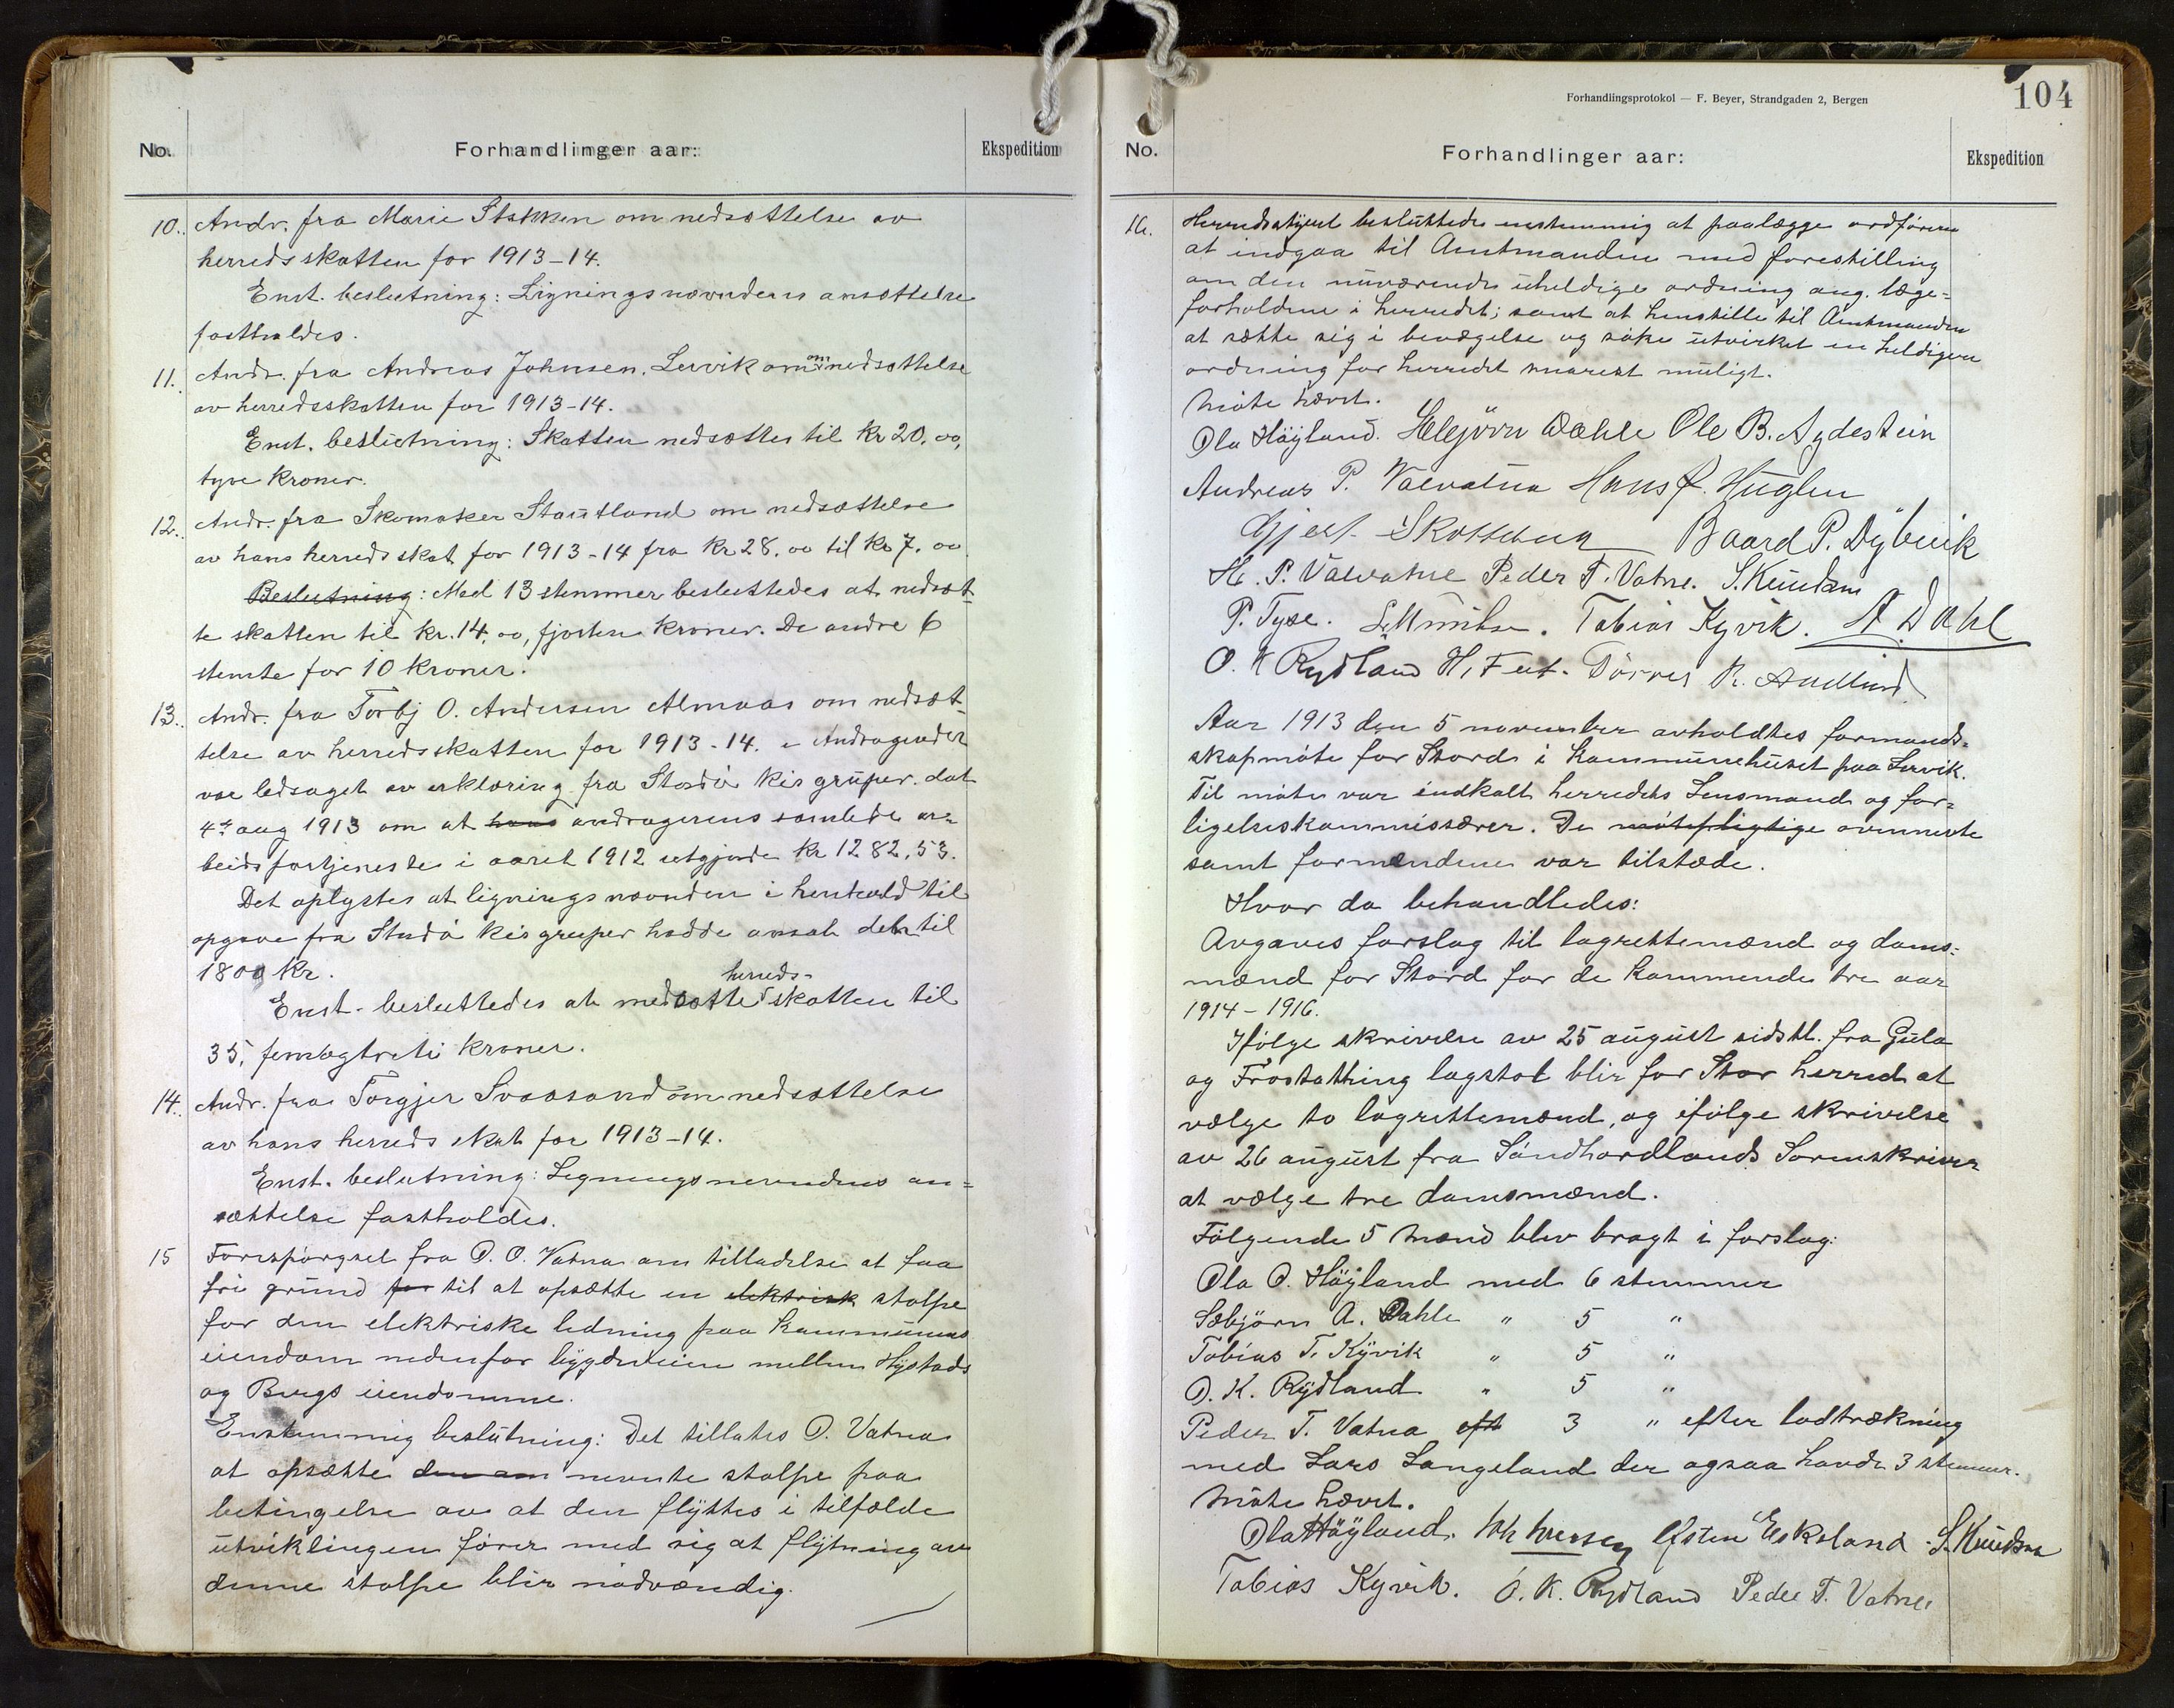 No. Forhandlinger aar: Ekspedition
10. Andr. fra Marie Stokken om nedsættelse av
herredsskatten for 1913-14.
Enst. beslutning: Ligningsnævndens ansættelse
fastholdes.
11. Andr. fra Andreas Johnsen, Lervik om nedsættelse
av herredsskatten for 1913-14.
Enst. beslutning: Skatten nedsættes til kr 20.00,
tyve kroner.
12. Andr. fra Skomaker Stautland om nedsættelse
av hans herredsskat for 1913-14 fra kr 28.00 til kr 7.00
Beslutning: Med 13 stemmer besluttedes at nedsæt-
te skatten til kr. 14.00, fjorten kroner. De andre 6
stemte for 10 kroner.
13. Andr. fra Torbj O. Andersen Almaas om nedsæt-
telse av herredsskatten for 1913-14. Andragendet
var ledsaget av erklæring fra Stordø kisgruper dat
4de aug 1913 om at hans andragerens samlede ar-
beidsfortjeneste i aaret 1912 utgjorde kr 1282,53.
Det oplystes at ligningsnævnden i henhold til
opgave fra Stordø kisgruper hadde ansat den til
1800 kr.
Enst. besluttedes at nedsætte herreds-skatten til
35, femogtreti kroner.
14. Andr. fra Torgjer Svaasand om nedsættelse
av hans herredsskat for 1913-14.
Enst. beslutning: Ligningsnevndens an-
sættelse fastholdes.
15 Forespørgsel fra O. O. Vatna om tilladelse at faa
fri grund for til at opsætte en elektrisk stolpe
for den elektriske ledning paa kommunens
eiendom nedenfor bygdeveien mellem Hystads
og Bergs eiendomme.
Enstemmig beslutning: Det tillates O. Vatna
at opsætte den om nevnte stolpe paa
betingelse av at den flyttes i tilfælde
utviklingen fører med sig at flytning av
denne stolpe blir nødvændig.
Forhandlingsprotokol — F. Beyer, Strandgaden 2, Bergen
104
No. Forhandlinger aar: Ekspedition
16. Herredsstyret besluttede enstemmig at paalægge ordføreren
at indgaa til Amtmanden med forestilling
om den nuværende uheldige ordning ang. læge-
forholdene i herredet; samt at henstille til Amtmanden
at sætte sig i bevægelse og søke utvirket en heldigere
ordning for herredet snarest muligt.
Møte hævet.
Ola Høyland. Helgjörn Dahle Ole B. Aydestein
Andreas P. Valvatna Hans J. Huglen
Gjert Skotsberg Baard P. Dybvik
H. P. Valvatne Peder T. Vatne. S. Knudsen
P. Tyse. Tobias Kyvik. A Dahl
O. K Rydland H. Feet. Törres R. Aadland
Aar 1913 den 5 november avholdtes formands-
skapmøte for Stord i kommunehuset paa Lervik.
Til møte var indkalt herredets Lensmand og for-
ligelseskommissærer. De møtepligtige ovennevnte
samt formændene var tilstæde.
Hvor da behandledes:
Avgaves forslag til lagrettemænd og doms-
mænd for Stord for de kommende tre aar
1914 - 1916.
Ifølge skrivelse av 25 august sidstl. fra Gula
og Frostathing lagstol blir for Stor herred at
vælge to lagrettemænd, og ifølge skrivelse
av 26 august fra Søndhordlands Sorenskriver
at vælge tre domsmænd.
Følgende 5 mænd blev bragt i forslag:
Ola O. Høyland med 6 stemmer
Sæbjørn A. Dahle " 5 "
Tobias T. Kyvik " 5 "
O. K. Rydland " 5 "
Peder T. Vatna eft 3 " efter lodtrækning
med Lars Langeland der ogsaa havde 3 stemmer.
Møte hævet.
Ola Høyland. Joh Iversen Østen Eskeland S. Knudsen
Tobias Kyvik. O. K. Rydland Peder T. Vatne.